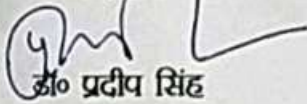 डॉ० प्रदीप सिंह